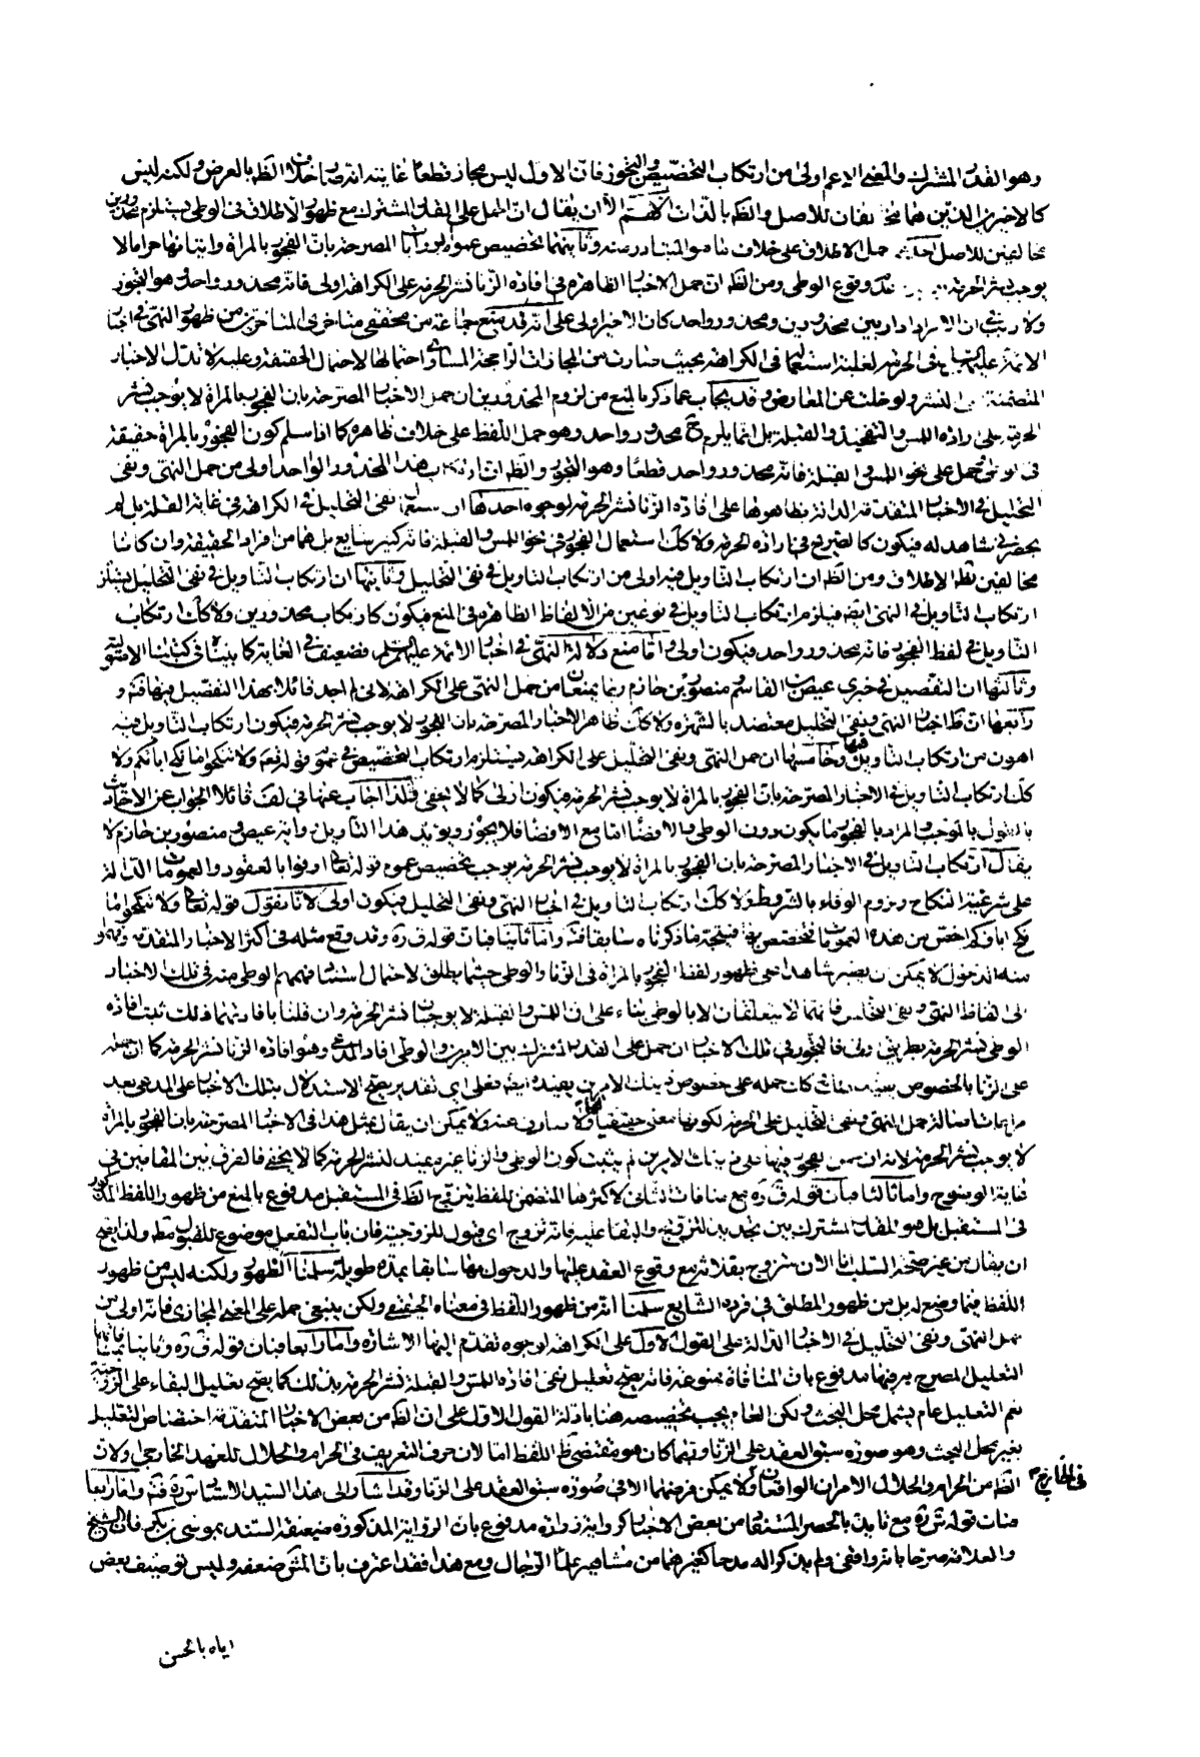 وهو القدر المشترك والمعنى الاعم اولى من ارتكاب التخصيص والتجوز فان الاول ليس مجاز قطعا غايته انه صار خلاف الظ بالعرض ولكنه ليس
كالاخيرين الذين هما مخالفان للاصل والظ بالذات اللهم الا ان يقال ان الحمل على القدر المشترك مع ظهور الاطلاق فى الوطى يستلزم محذورين
مخالفين للاصل احدهما حمل الاطلاق على خلاف ما هو المتبادر منه وثانيهما تخصيص عموم الروايات المصرحة بان الفجور بالمراة واتيانها حراما لا
يوجب نشر الحرمة وقوع الوطى ومن الظ ان حمل الاخبار الظاهرة فى افادة الزنا نشر الحرمة على الكراهة اولى فانه محذور واحد وهو التجوز
ولا ريب فى ان الامر اذا دار بين محذورين ومحذور واحد كان الاخير اولى على انه قد منع جماعة من محققى متاخرى المتاخرين من ظهور النهى فى اخبار
الائمة عليهم فى الحرمة لغلبة استعمالها فى الكراهة بحيث صارت من المجازات الراجحة المساوى احتمالها لاحتمال الحقيقة وعليه لا تدل الاخبار
المتضمنة النشر ولو خلت عن المعارض وقد يجاب عما ذكر بالمنع من لزوم المحذورين ان حمل الاخبار المصرحة بان الفجور بالمراة لا يوجب نشر
الحرمة على ارادة اللمس والتفخيذ والقبلة بل انما يلزم ح محذور واحد وهو حمل اللفظ على خلاف ظاهره كما اذا سلم كون الفجور بالمراة حقيقة
فى الوطى حمل على نحو اللمس والقبلة فانه محذور واحد قطعا وهو التجوز والظ ان ارتكاب هذا المحذور الواحد اولى من حمل النهى ونفى
التحليل فى الاخبار المتقدمة الدالة بظاهرها على افادة الزنا نشر الحرمة لوجوه احدها ان استعمال نفى التحليل فى الكراهة فى غاية القلة بل لم
يحضرنى شاهد له فيكون كالصريح فى ارادة الحرمة ولا كك استعمال الفجور فى نحو اللمس والقبلة فانه كثير شايع بل هما من افراد الحقيقة وان كانا
مخالفين لظ الاطلاق ومن الظ ان ارتكاب التاويل فيه اولى من ارتكاب التاويل فى نفى التحليل وثانيها ان ارتكاب التاويل فى نفى التحليل يستلزم
ارتكاب التاويل فى النهى ايضا فيلزم ارتكاب التاويل فى نوعين من الالفاظ الظاهرة فى المنع فيكون كارتكاب محذورين ولا كك ارتكاب
التاويل فى لفظ الفجور فانه محذور واحد فيكون اولى واما منع دلالة النهى فى اخبار الائمة عليهم السلم فضعيف فى الغاية كما بيناه فى كتبنا الاصولية
وثالثها ان التفصيل فى خبرى عيص بن القاسم ومنصور بن حازم ربما يمنعان من حمل النهى على الكراهة لانى لم اجد قائلا بهذا التفصيل فيها فت و
رابعها ان ظ اخبار النهى ونفى التحليل معتضد بالشهرة ولا كك ظاهر الاخبار المصرحة بان الفجور لا يوجب نشر الحرمة فيكون ارتكاب التاويل فيه
اهون من ارتكاب التاويل فيها وخامسها ان حمل النهى ونفى التحليل على الكراهة يستلزم ارتكاب التخصيص فى عموم قوله تعم ولا تنكحوا ما نكح اباؤكم ولا
كك ارتكاب التاويل فى الاخبار المصرحة بان الفجور بالمراة لا يوجب نشر الحرمة فيكون اولى كما لا يخفى ولذا اجاب عنها فى لف قائلا الجواب عن الاحاديث
بالقول بالموجب والمراد بالفجور ما يكون دون الوطى والافضاء اما مع الافضاء فلا يجوز ويؤيد هذا التاويل رواية عيص ومنصور بن حازم لا
يقال ارتكاب التاويل فى الاخبار المصرحة بان الفجور بالمراة لا يوجب نشر الحرمة يوجب تخصيص عموم قوله تعالى اوفوا بالعقود والعمومات الدالة
على شرعية النكاح ولزوم الوفاء بالشروط ولا كك ارتكاب التاويل فى اخبار النهى ونفى التحليل فيكون اولى لانا نقول قوله تعالى ولا تنكحوا ما
نكح اباؤكم اخص من هذه العمومات فتخصص به فيتجه ما ذكرناه سابقا فت واما ثانيا فبان قوله ق ره وقد وقع مثله فى اكثر الاخبار المتقدمة
منه الدخول لا يمكن ان يصير شاهدا على ظهور لفظ الفجور بالمراة فى الزنا والوطى حيثما يطلق لاحتمال استفادة الوطى منه فى تلك الاخبار
الى الفاظ النهى ونفى التحليل فانهما لا يتعلقان الا بالوطى بناء على ان اللمس والقبلة لا يوجبان نشر الحرمة وان قلنا بافادتهما ذلك ثبت افادة
الوطى نشر الحرمة بطريق اولى فالفجور فى تلك الاخبار ان حمل على القدر المشترك بين الامرين والوطى افاد المدعى وهو افادة الزنا نشر الحرمة كما ان حمله
على الزنا بالخصوص يفيد ذلك وان كان حمله على خصوص ذينك الامرين يفيده ايضا فعلى اى تقدير يصح الاستدلال بتلك الاخبار على المدعى بعد
مراعات اصالة حمل النهى ونفى التحليل على الحرمة لكونها معنى حقيقيا لهما ولا صارف عنه ولا يمكن ان يقال بمثل هذا فى الاخبار المصرحة بان الفجور بالمراة
لا يوجب نشر الحرمة لانه ان حمل الفجور فيها على ذينك الامرين لم يثبت كون الوطى والزنا غير مفيد لنشر الحرمة كما لا يخفى فالفرق بين المقامين فى
غاية الوضوح واما ثالثا فبان قوله ق ره مع منافات الثانى لاكثرها المتضمن للفظ يتزوج الظ فى المستقبل مدفوع بالمنع من ظهور اللفظ المذكور
فى المستقبل بل هو للقدر المشترك بين تجديد التزويج والبقاء عليه فانه تزوج اى قبول للزوجية فان باب التفعل موضوع للقبول مط ولذا يصح
ان يقال من غير صحة السلب انا الان متزوج بفلانة مع وقوع العقد عليها والدخول بها سابقا بمدة طويلة سلمنا الظهور ولكنه ليس من ظهور
اللفظ فيما وضع له بل من ظهور المطلق فى فرده الشايع سلمنا انه من ظهور اللفظ فى معناه الحقيقى ولكن ينبغى حمله على المعنى المجازى فانه اولى من
حمل النهى ونفى التحليل فى الاخبار الدالة على القول الاول على الكراهة لوجوه تقدم اليها الاشارة واما رابعا فبان قوله ق ره وثانيا فانه ينافيه
التعليل المصرح به فيها مدفوع بان المنافاة ممنوعة فانه يصح تعليل نفى افادة اللمس والقبلة نشر الحرمة بذلك كما يصح تعليل البقاء على الزوجية
نعم التعليل عام يشمل محل البحث ولكن العام يجب تخصيصه هنا بادلة القول الاول على ان الظ من بعض الاخبار المتقدمة اختصاص التعليل
بغير محل البحث وهو صورة سبق العقد على الزنا وربما كان هو مقتضى ظ اللفظ اما لان حرف التعريف فى الحرام والحلال للعهد الخارجى ولان
الظ من الحرام والحلال الامران الواقعان فى الخارج ولا يمكن فرضهما الا فى صورة سبق العقد على الزنا وقد اشار الى هذا السيد الاستاد ره فت واما رابعا
فبان قوله ق ره مع تايده بالحصر المستفاد من بعض الاخبار كرواية زرارة مدفوع بان الرواية المذكورة ضعيفة السند بموسى بن بكر فان الشيخ
والعلامة صرحا بانه واقفى ولم يذكرا له مدحا كغيرهما من مشاهير علماء الرجال ومع هذا فقد اعترف بان المش ضعفه وليس توصيف بعض
اياه بالحسن